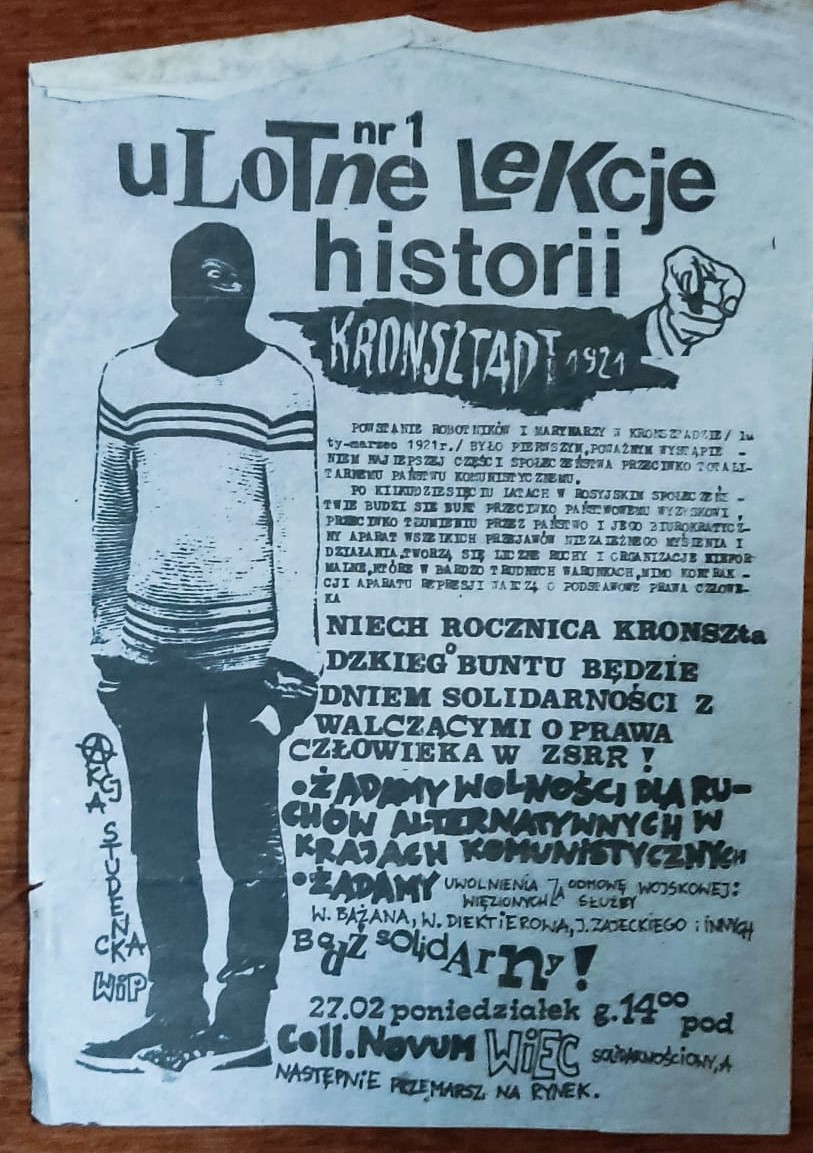 nr 1
uLoTne LeKcje
historii
KRONSZTADT 1921
POWSTANIE ROBOTNIKÓW I MARYNARZY W KRONSZTADZIE/ lu
ty-marzec 1921r./ BYŁO PIERWSZYM,POWAŻNYM WYSTĄPIE -
NIEM NAJLEPSZEJ CZĘŚCI SPOŁECZEŃSTWA PRZECIWKO TOTALI-
TARNEMU PAŃSTWU KOMUNISTYCZNEMU.
PO KILKUDZIESIĘCIU LATACH W ROSYJSKIM SPOŁECZEŃS -
TWIE BUDZI SIE BUNT PRZECIWKO PAŃSTWOWEMU WYZYSKOWI ,
PRZECIWKO TŁUMIENIU PRZEZ PAŃSTWO I JEGO BIUROKRATYCZ-
NY APARAT WSZELKICH PRZEJAWÓW NIEZALEŻNEGO MYŚLENIA I
DZIAŁANIA,TWORZĄ SIĘ LICZNE RUCHY I ORGANIZACJE NIEFOR
MALNE,KTÓRE W BARDZO TRUDNYCH WARUNKACH,MIMO KONTRAK -
CJI APARATU REPRESJI WALCZĄ O PODSTAWOWE PRAWA CZŁOWIE-
KA
NIECH ROCZNICA KRONSZta
DZKIEGO BUNTU BĘDZIE
DNIEM SOLIDARNOŚCI Z
WALCZĄCYMI O PRAWA
CZŁOWIEKA W ZSRR !
•ŻĄDAMY WOLNOŚCI DLA RU-
CHÓW ALTERNATYWNYCH W
KRAJACH KOMUNISTYCZNYCH
•ŻĄDAMY UWOLNIENIA WIĘZIONYCH ZA ODMOWĘ SŁUŻBY WOJSKOWEJ:
W. BAŻANA, W. DIEKTIEROWA, J. ZAJECKIEGO i iNNYCH
BądŹ sOlidArny!
27.02 poniedziałek g.14⁰⁰ pod
Coll.Novum WiEC SOLIDARNOŚCiOWY, A
NASTĘPNiE PRZEMARSZ NA RYNEK.
AKCJA
STUDENCKA
WiP